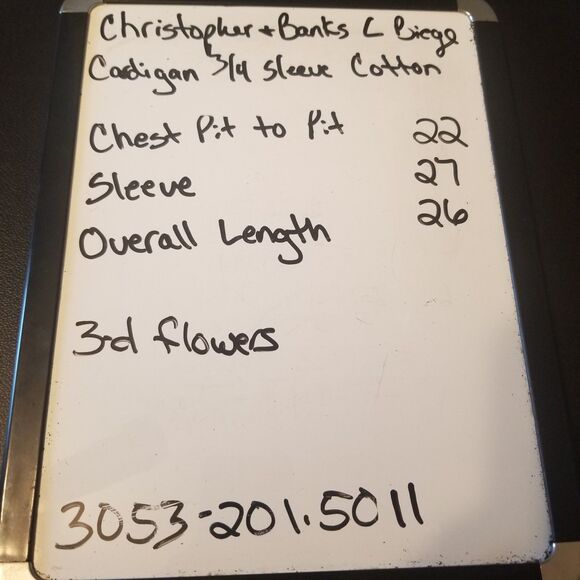 Christopher + Banks L Biege
Cardigan 3/4 Sleeve Cotton
Chest Pit to Pit 22
Sleeve 27
Overall Length 26
3-d flowers
3053-201.5011